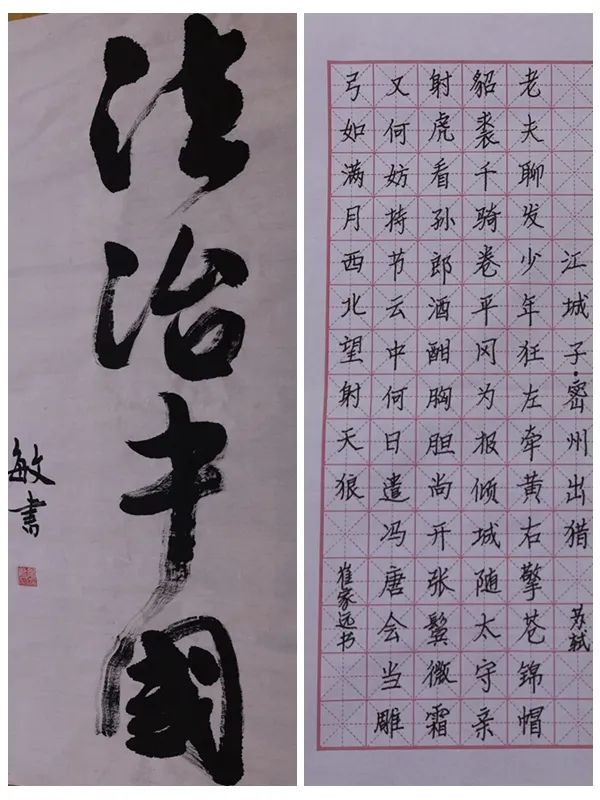 法治中國
敏書
江城子·密州出猎
苏轼
老夫聊发少年狂左牵黄右擎苍锦帽
貂裘千骑卷平冈为报倾城随太守亲
射虎看孙郎酒酣胸胆尚开张鬓微霜
又何妨持节云中何日遣冯唐会当雕
弓如满月西北望射天狼
崔家远书